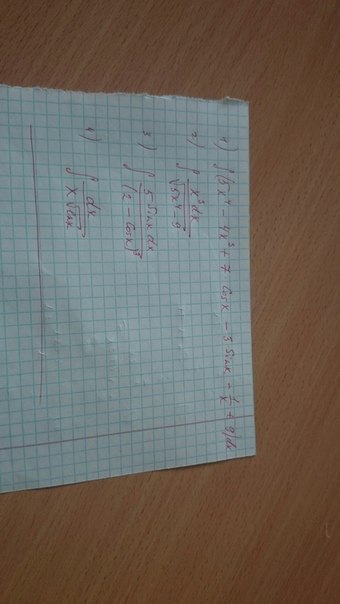 1) ∫(5x⁴ - 4x³ + 7 cos x - 3 sin x - 1/x + 9)dx
2) ∫ x³dx / √(5x⁴ - 9)
3) ∫ 5 sin x dx / (2 - cos x)³
4) ∫ dx / x√(ln x)